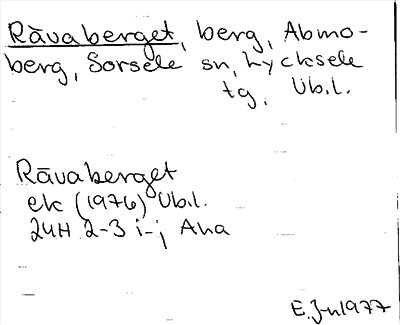 Råvaberget, berg, Abmo-
berg, Sorsele sn, Lycksele
tg, Vb.l.
Råvaberget
ek (1976) Vb.l.
24H 2-3 i-j Aha
E.Jn 1977